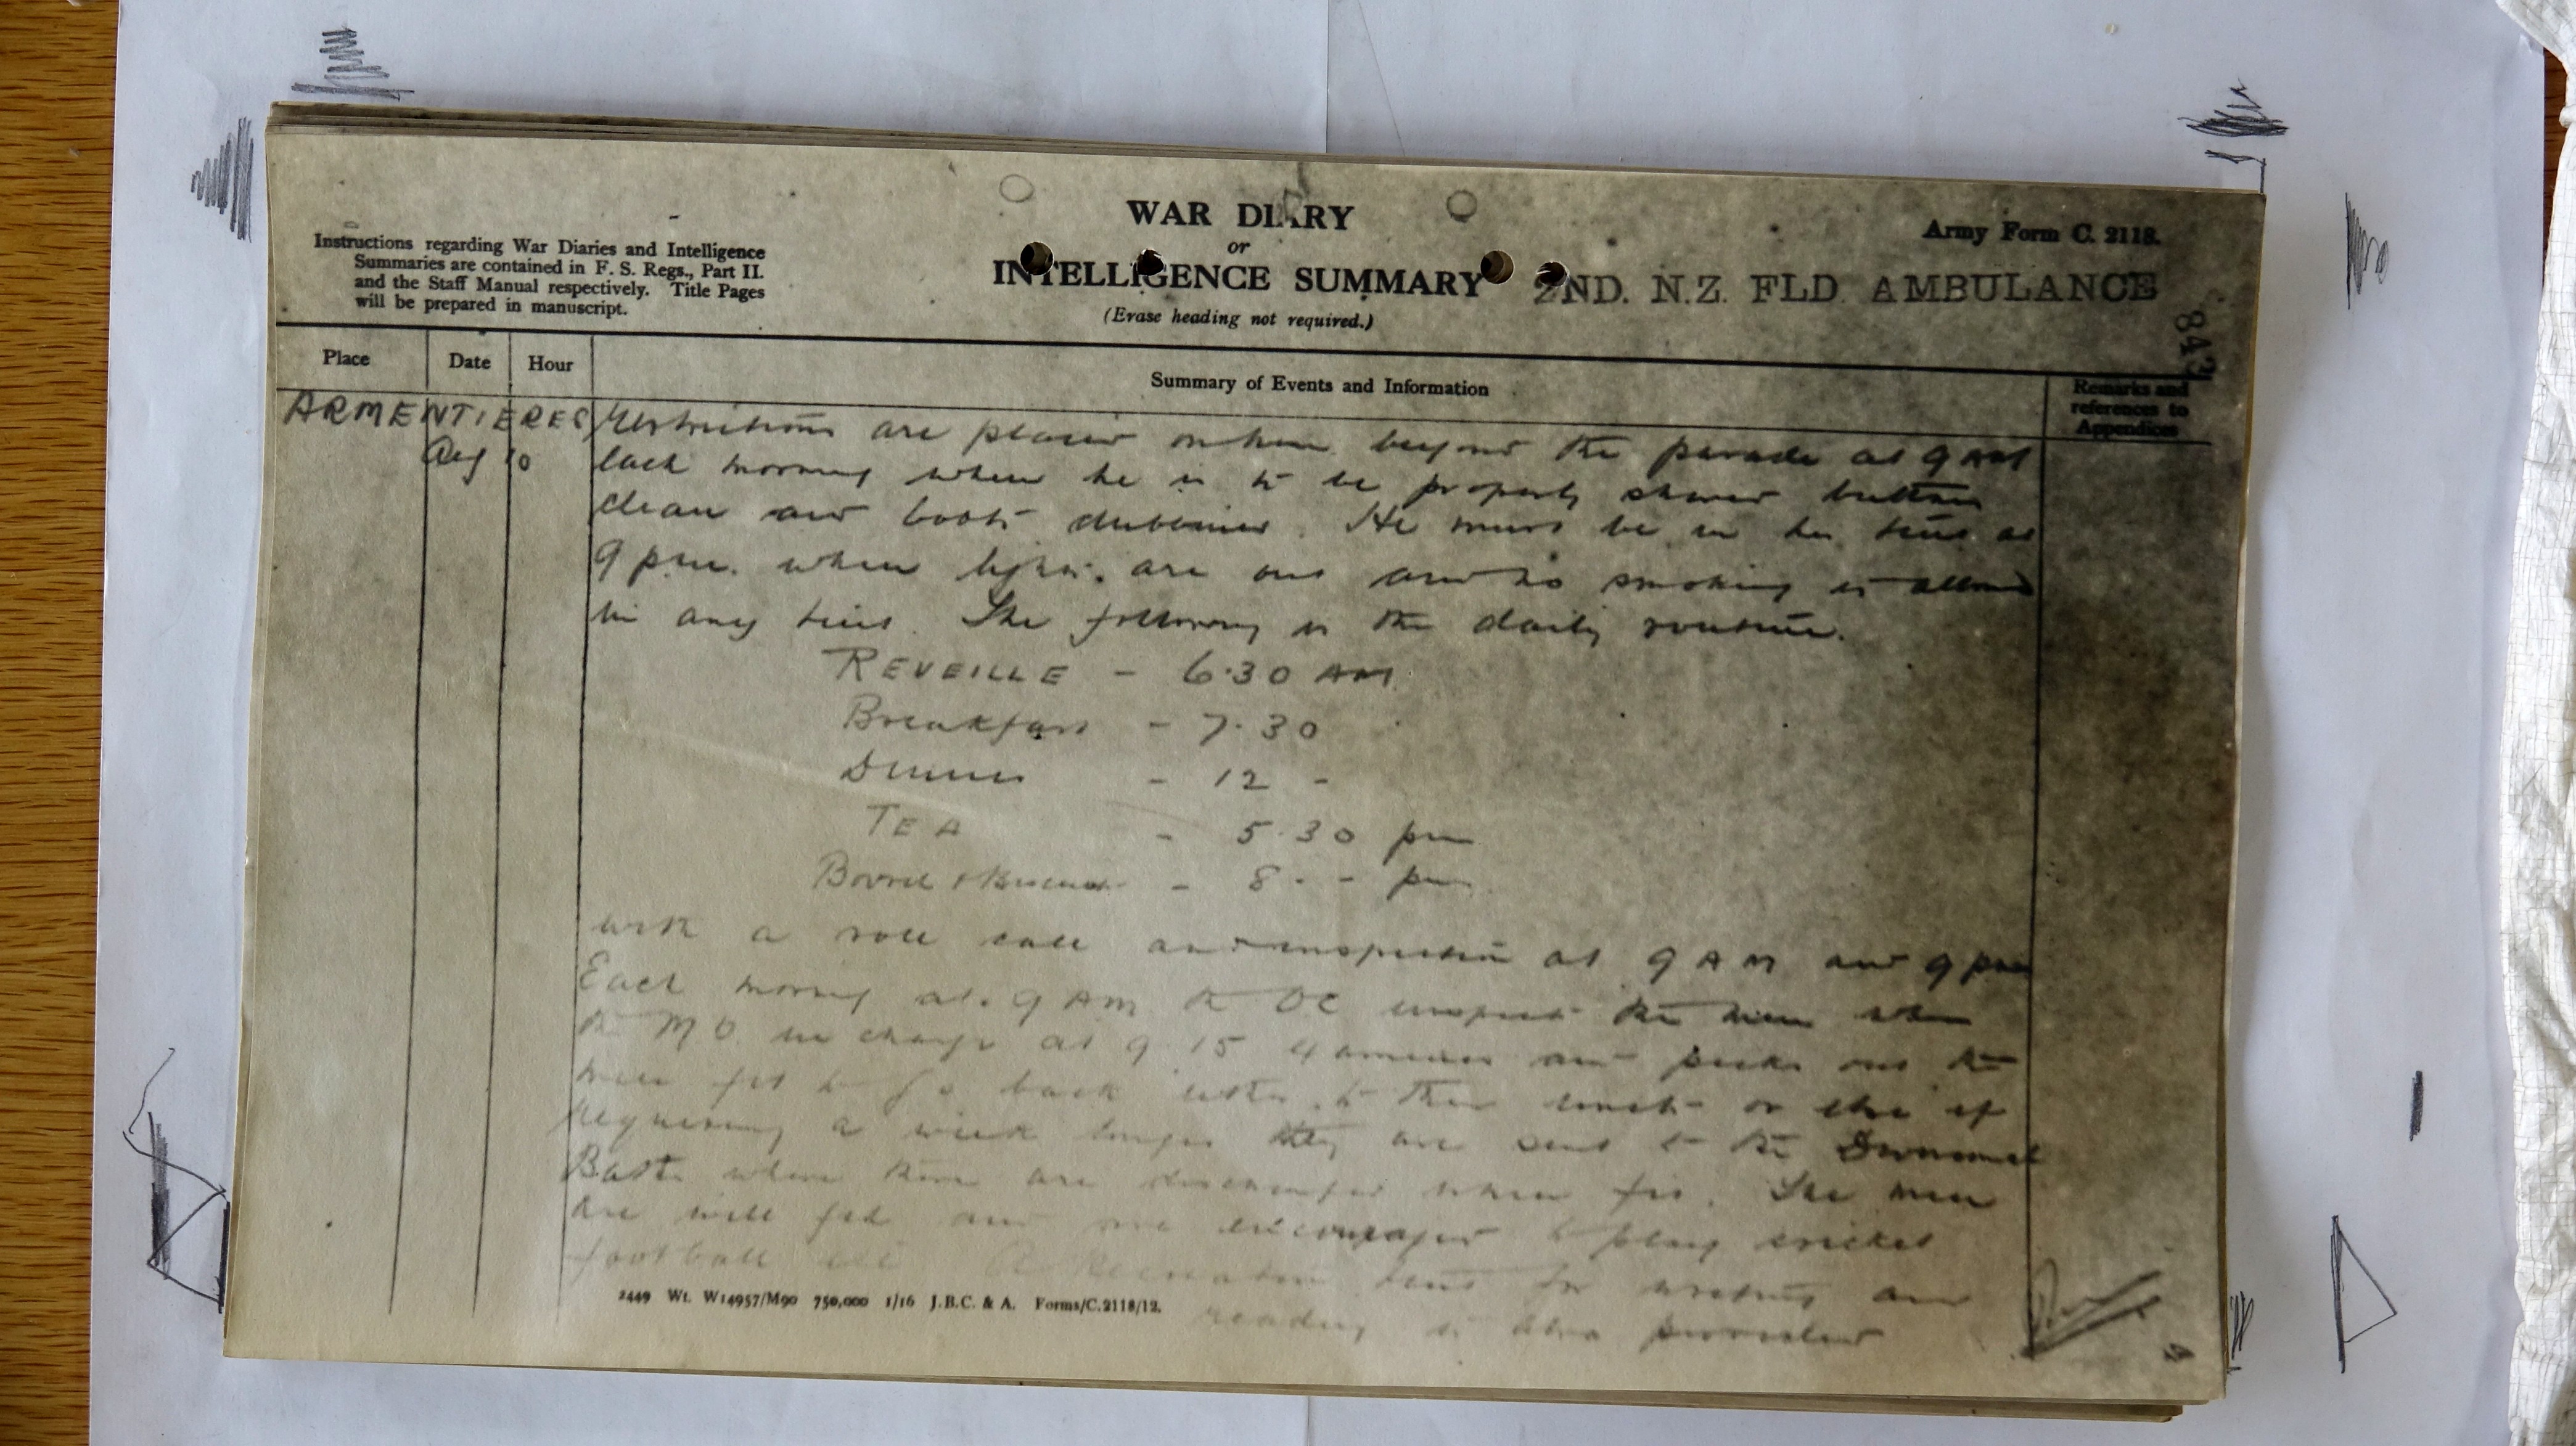 Instructions regarding War Diaries and Intelligence
Summaries are contained in F. S. Regs., Part II.
and the Staff Manual respectively. Title Pages
will be prepared in manuscript.
WAR DIARY
or
INTELLIGENCE SUMMARY
(Erase heading not required.)
Army Form C. 2118.
2ND. N.Z. FLD. AMBULANCE
843
Place
Date
Hour
Summary of Events and Information
Remarks and
references to
Appendices
ARMENTIERES
Aug 10
restrictions are placed on him beyond the parade at 9 AM
each morning when he is to be properly shaved buttons
clean and boots dubbined. He must be in his tent at
9 pm. when lights are out and no smoking is allowed
in any tent. The following is the daily routine.
REVEILLE - 6.30 AM.
Breakfast - 7.30
Dinner - 12 -
TEA - 5.30 pm
Bovril & Biscuits - 8 - - pm
with a roll call and inspection at 9 AM and 9 pm
Each morning at 9 AM the OC inspects the men when
the MO in charge at 9.15 examines and picks out the
men fit to go back either to their units or else if
requiring a week longer they are sent to the Divisional
Baths where they are discharged when fit. The men
are well fed and are encouraged to play cricket
football etc. A Recreation tent for writing and
reading is also provided
2449 Wt. W14957/M90 750,000 1/16 J.B.C. & A. Forms/C.2118/12.